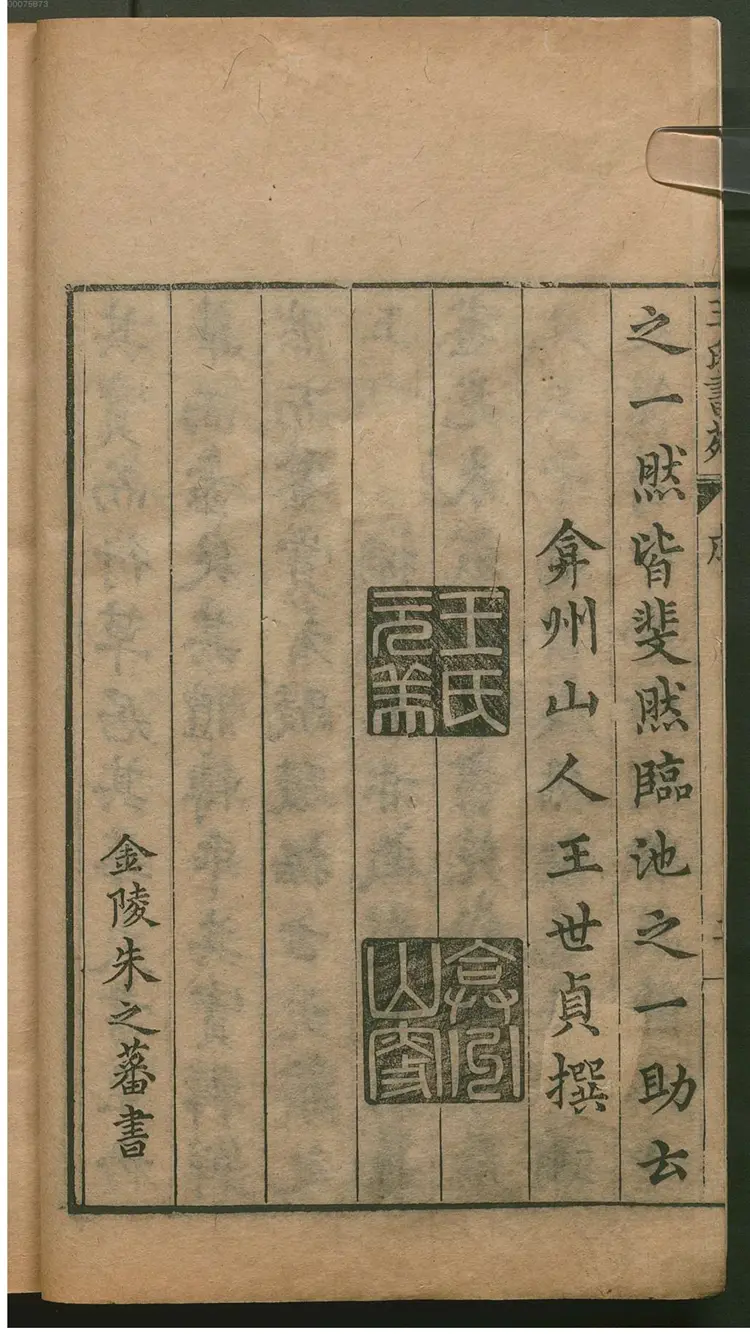 00075873
王氏書苑 序
之一然皆斐然臨池之一助云
弇州山人王世貞撰
王氏元美
金陵朱之蕃書